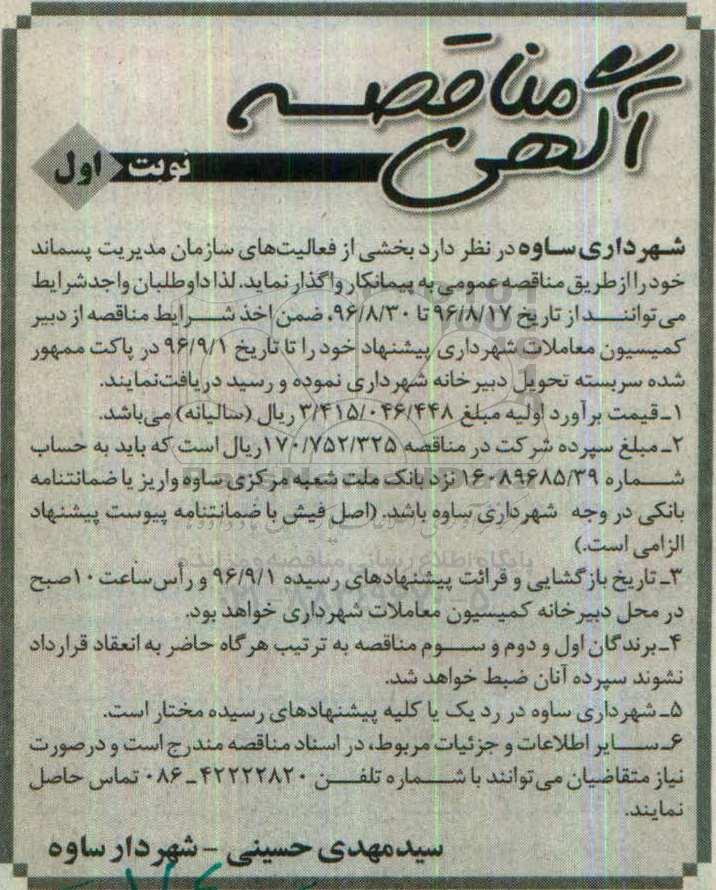 آگهی مناقصه
نوبت اول
شهرداری ساوه در نظر دارد بخشی از فعالیت‌های سازمان مدیریت پسماند
خود را از طریق مناقصه عمومی به پیمانکار واگذار نماید. لذا داوطلبان واجد شرایط
می‌توانند از تاریخ ۹۶/۸/۱۷ تا ۹۶/۸/۳۰، ضمن اخذ شرایط مناقصه از دبیر
کمیسیون معاملات شهرداری پیشنهاد خود را تا تاریخ ۹۶/۹/۱ در پاکت ممهور
شده سربسته تحویل دبیرخانه شهرداری نموده و رسید دریافت نمایند.
۱ـ قیمت برآورد اولیه مبلغ ۳/۴۱۵/۰۴۶/۴۴۸ ریال (سالیانه) می‌باشد.
۲ـ مبلغ سپرده شرکت در مناقصه ۱۷۰/۷۵۲/۳۲۵ ریال است که باید به حساب
شماره ۱۶۰۸۹۶۸۵/۳۹ نزد بانک ملت شعبه مرکزی ساوه واریز یا ضمانتنامه
بانکی در وجه شهرداری ساوه باشد. (اصل فیش با ضمانتنامه پیوست پیشنهاد
الزامی است.)
۳ـ تاریخ بازگشایی و قرائت پیشنهادهای رسیده ۹۶/۹/۱ و رأس ساعت ۱۰ صبح
در محل دبیرخانه کمیسیون معاملات شهرداری خواهد بود.
۴ـ برندگان اول و دوم و سوم مناقصه به ترتیب هرگاه حاضر به انعقاد قرارداد
نشوند سپرده آنان ضبط خواهد شد.
۵ـ شهرداری ساوه در رد یک یا کلیه پیشنهادهای رسیده مختار است.
۶ـ سایر اطلاعات و جزئیات مربوط، در اسناد مناقصه مندرج است و درصورت
نیاز متقاضیان می‌توانند با شماره تلفن ۴۲۲۲۲۸۲۰ ـ ۰۸۶ تماس حاصل
نمایند.
سیدمهدی حسینی - شهردار ساوه